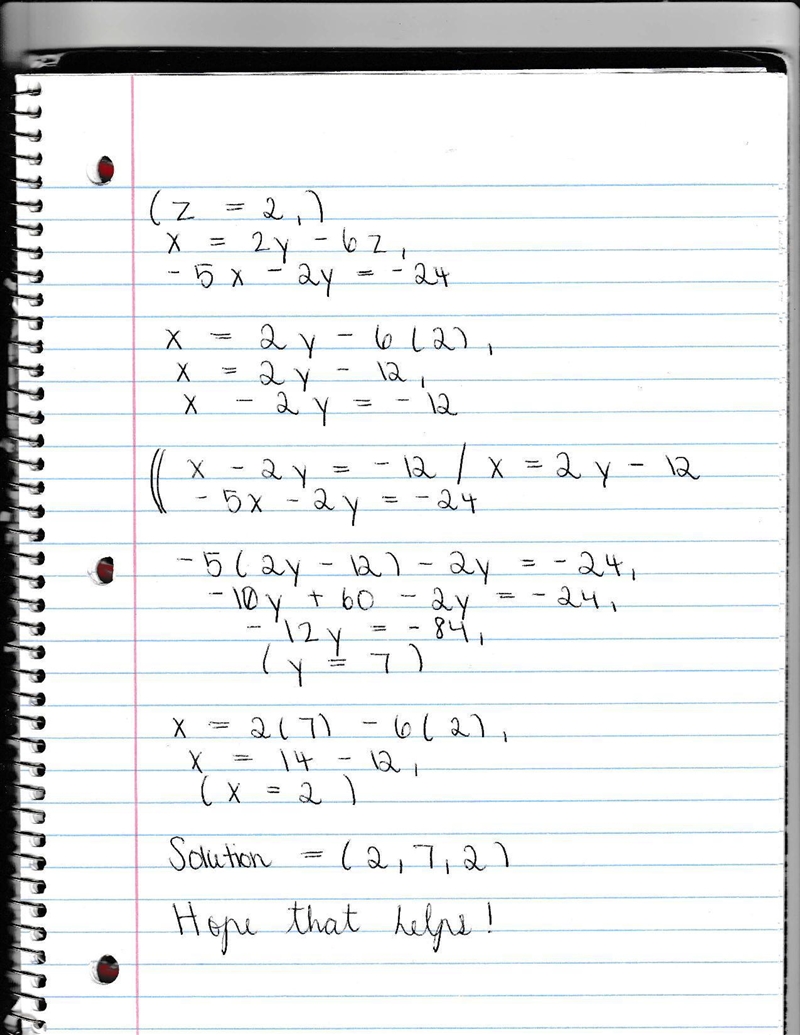 (z = 2,)
x = 2y - 6z,
-5x - 2y = -24
x = 2y - 6(2),
x = 2y - 12,
x - 2y = -12
(( x - 2y = -12 / x = 2y - 12
-5x - 2y = -24
-5(2y - 12) - 2y = -24,
-10y + 60 - 2y = -24,
-12y = -84,
(y = 7)
x = 2(7) - 6(2),
x = 14 - 12,
(x = 2)
Solution = (2,7,2)
Hope that helps!